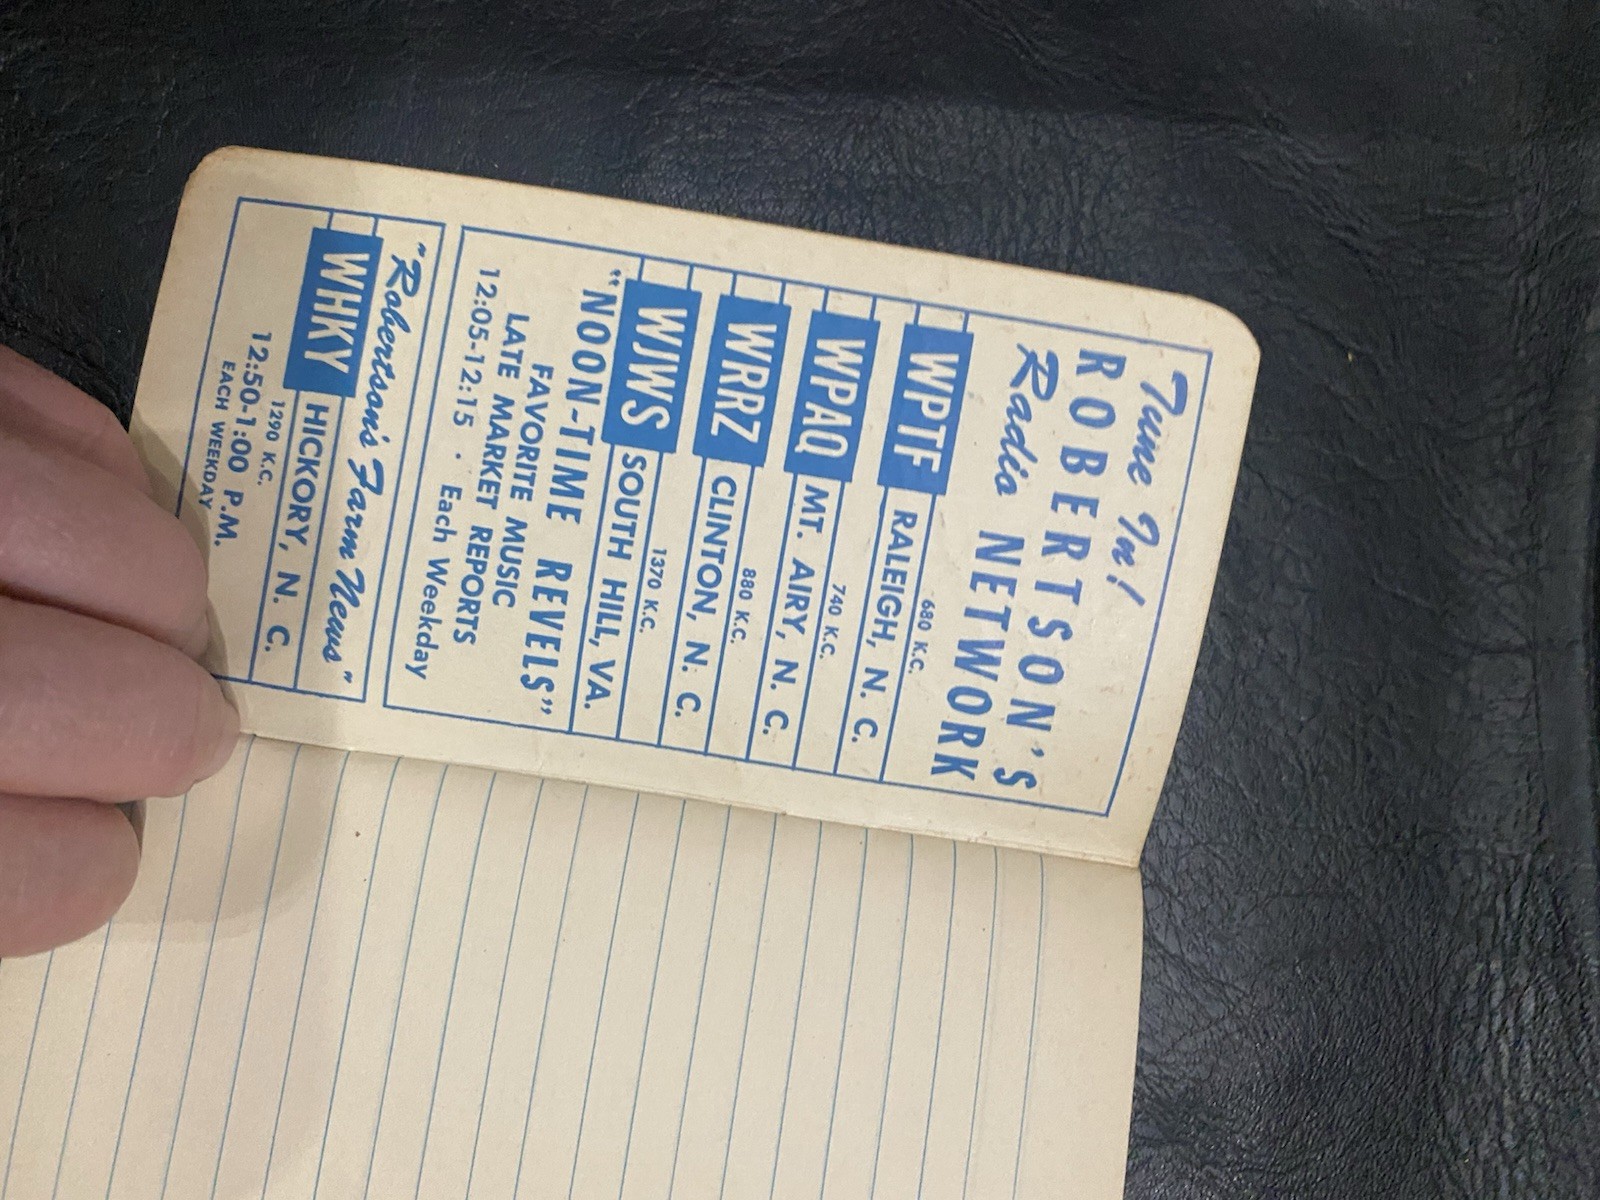 Tune In!
ROBERTSON'S
Radio NETWORK
680 K.C.
WPTF RALEIGH, N. C.
740 K.C.
WPAQ MT. AIRY, N. C.
880 K.C.
WRRZ CLINTON, N. C.
1370 K.C.
WJWS SOUTH HILL, VA.
"NOON-TIME REVELS"
FAVORITE MUSIC
LATE MARKET REPORTS
12:05-12:15 · Each Weekday
"Robertson's Farm News"
WHKY HICKORY, N. C.
1290 K.C.
12:50-1:00 P.M.
EACH WEEKDAY